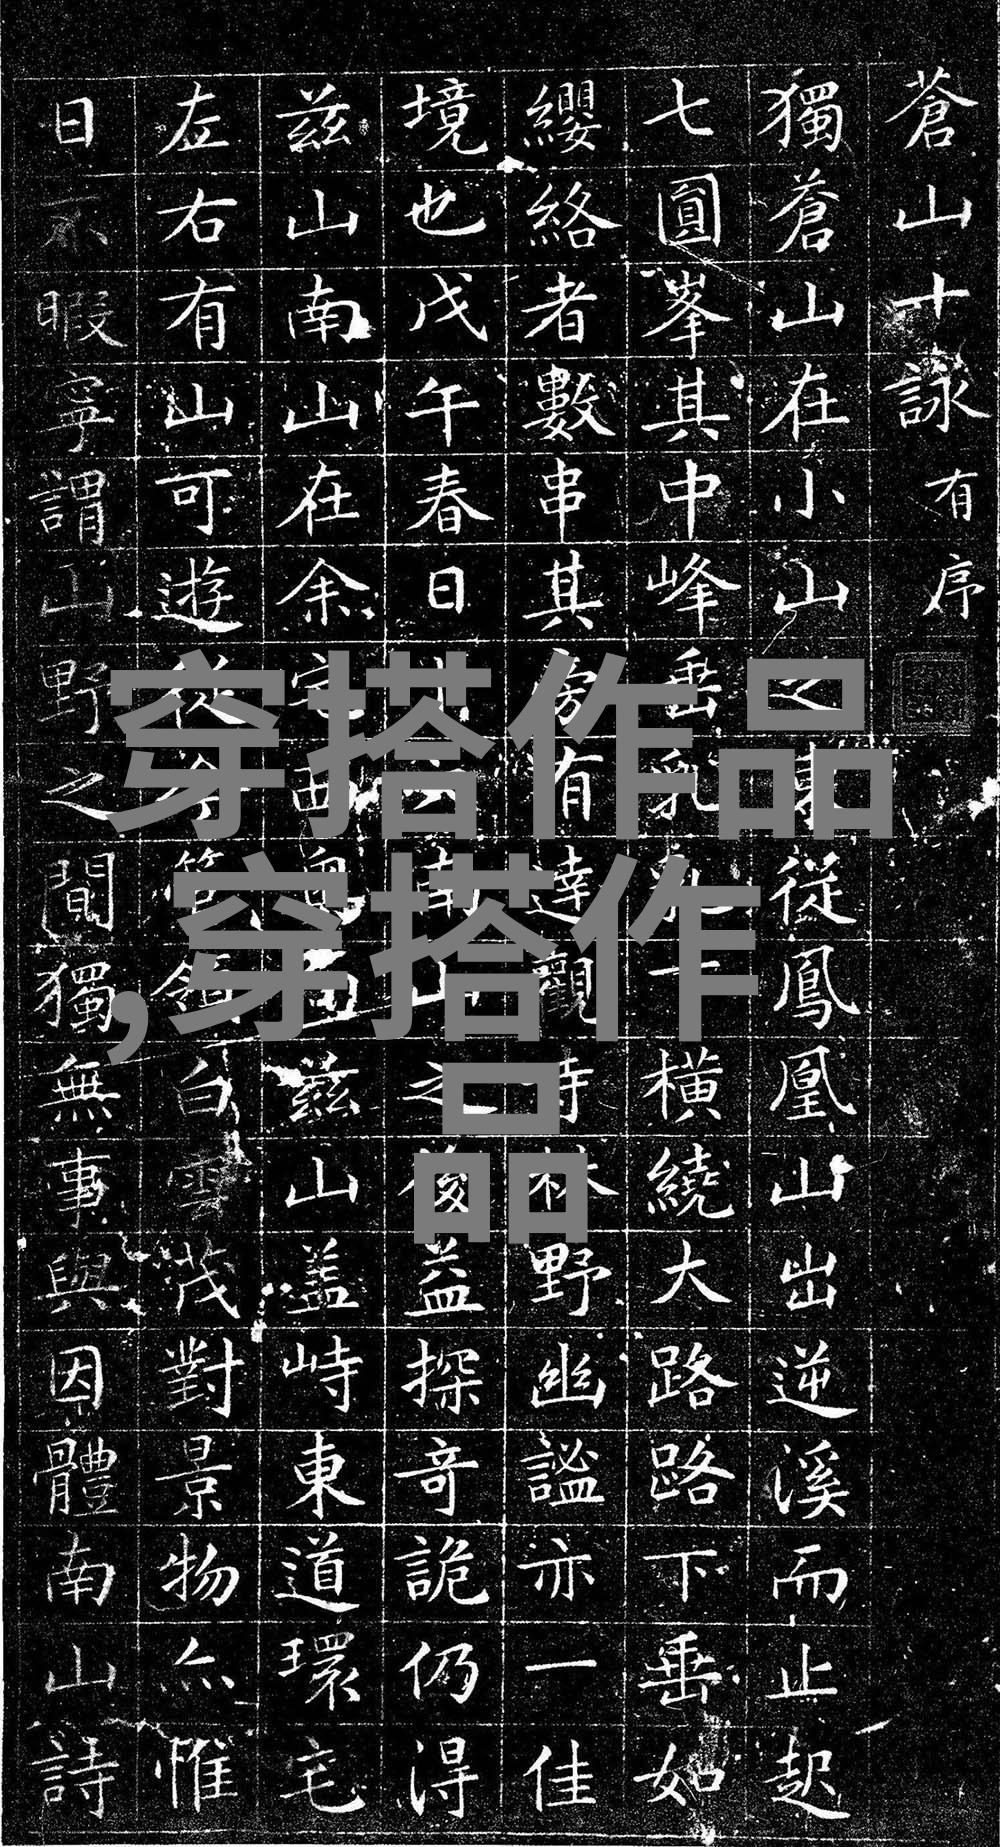 蒼山十詠 有序
獨蒼山在小山之東從鳳凰山出逆溪而止起
七圓峯其中峰垂乳乳下橫繞大路路下垂如
纓絡者數串其旁有達觀寺林野幽謐亦一佳
境也戊午春日南山之後益探奇詭仍得
茲山南山在余宅西茲山蓋峙東道環宅
左右有山可遊從今管領白雲茂對景物亦惟
日不暇寧謂山野之間獨無事與因體南山詩
穿搭作品
,穿搭作
品
品